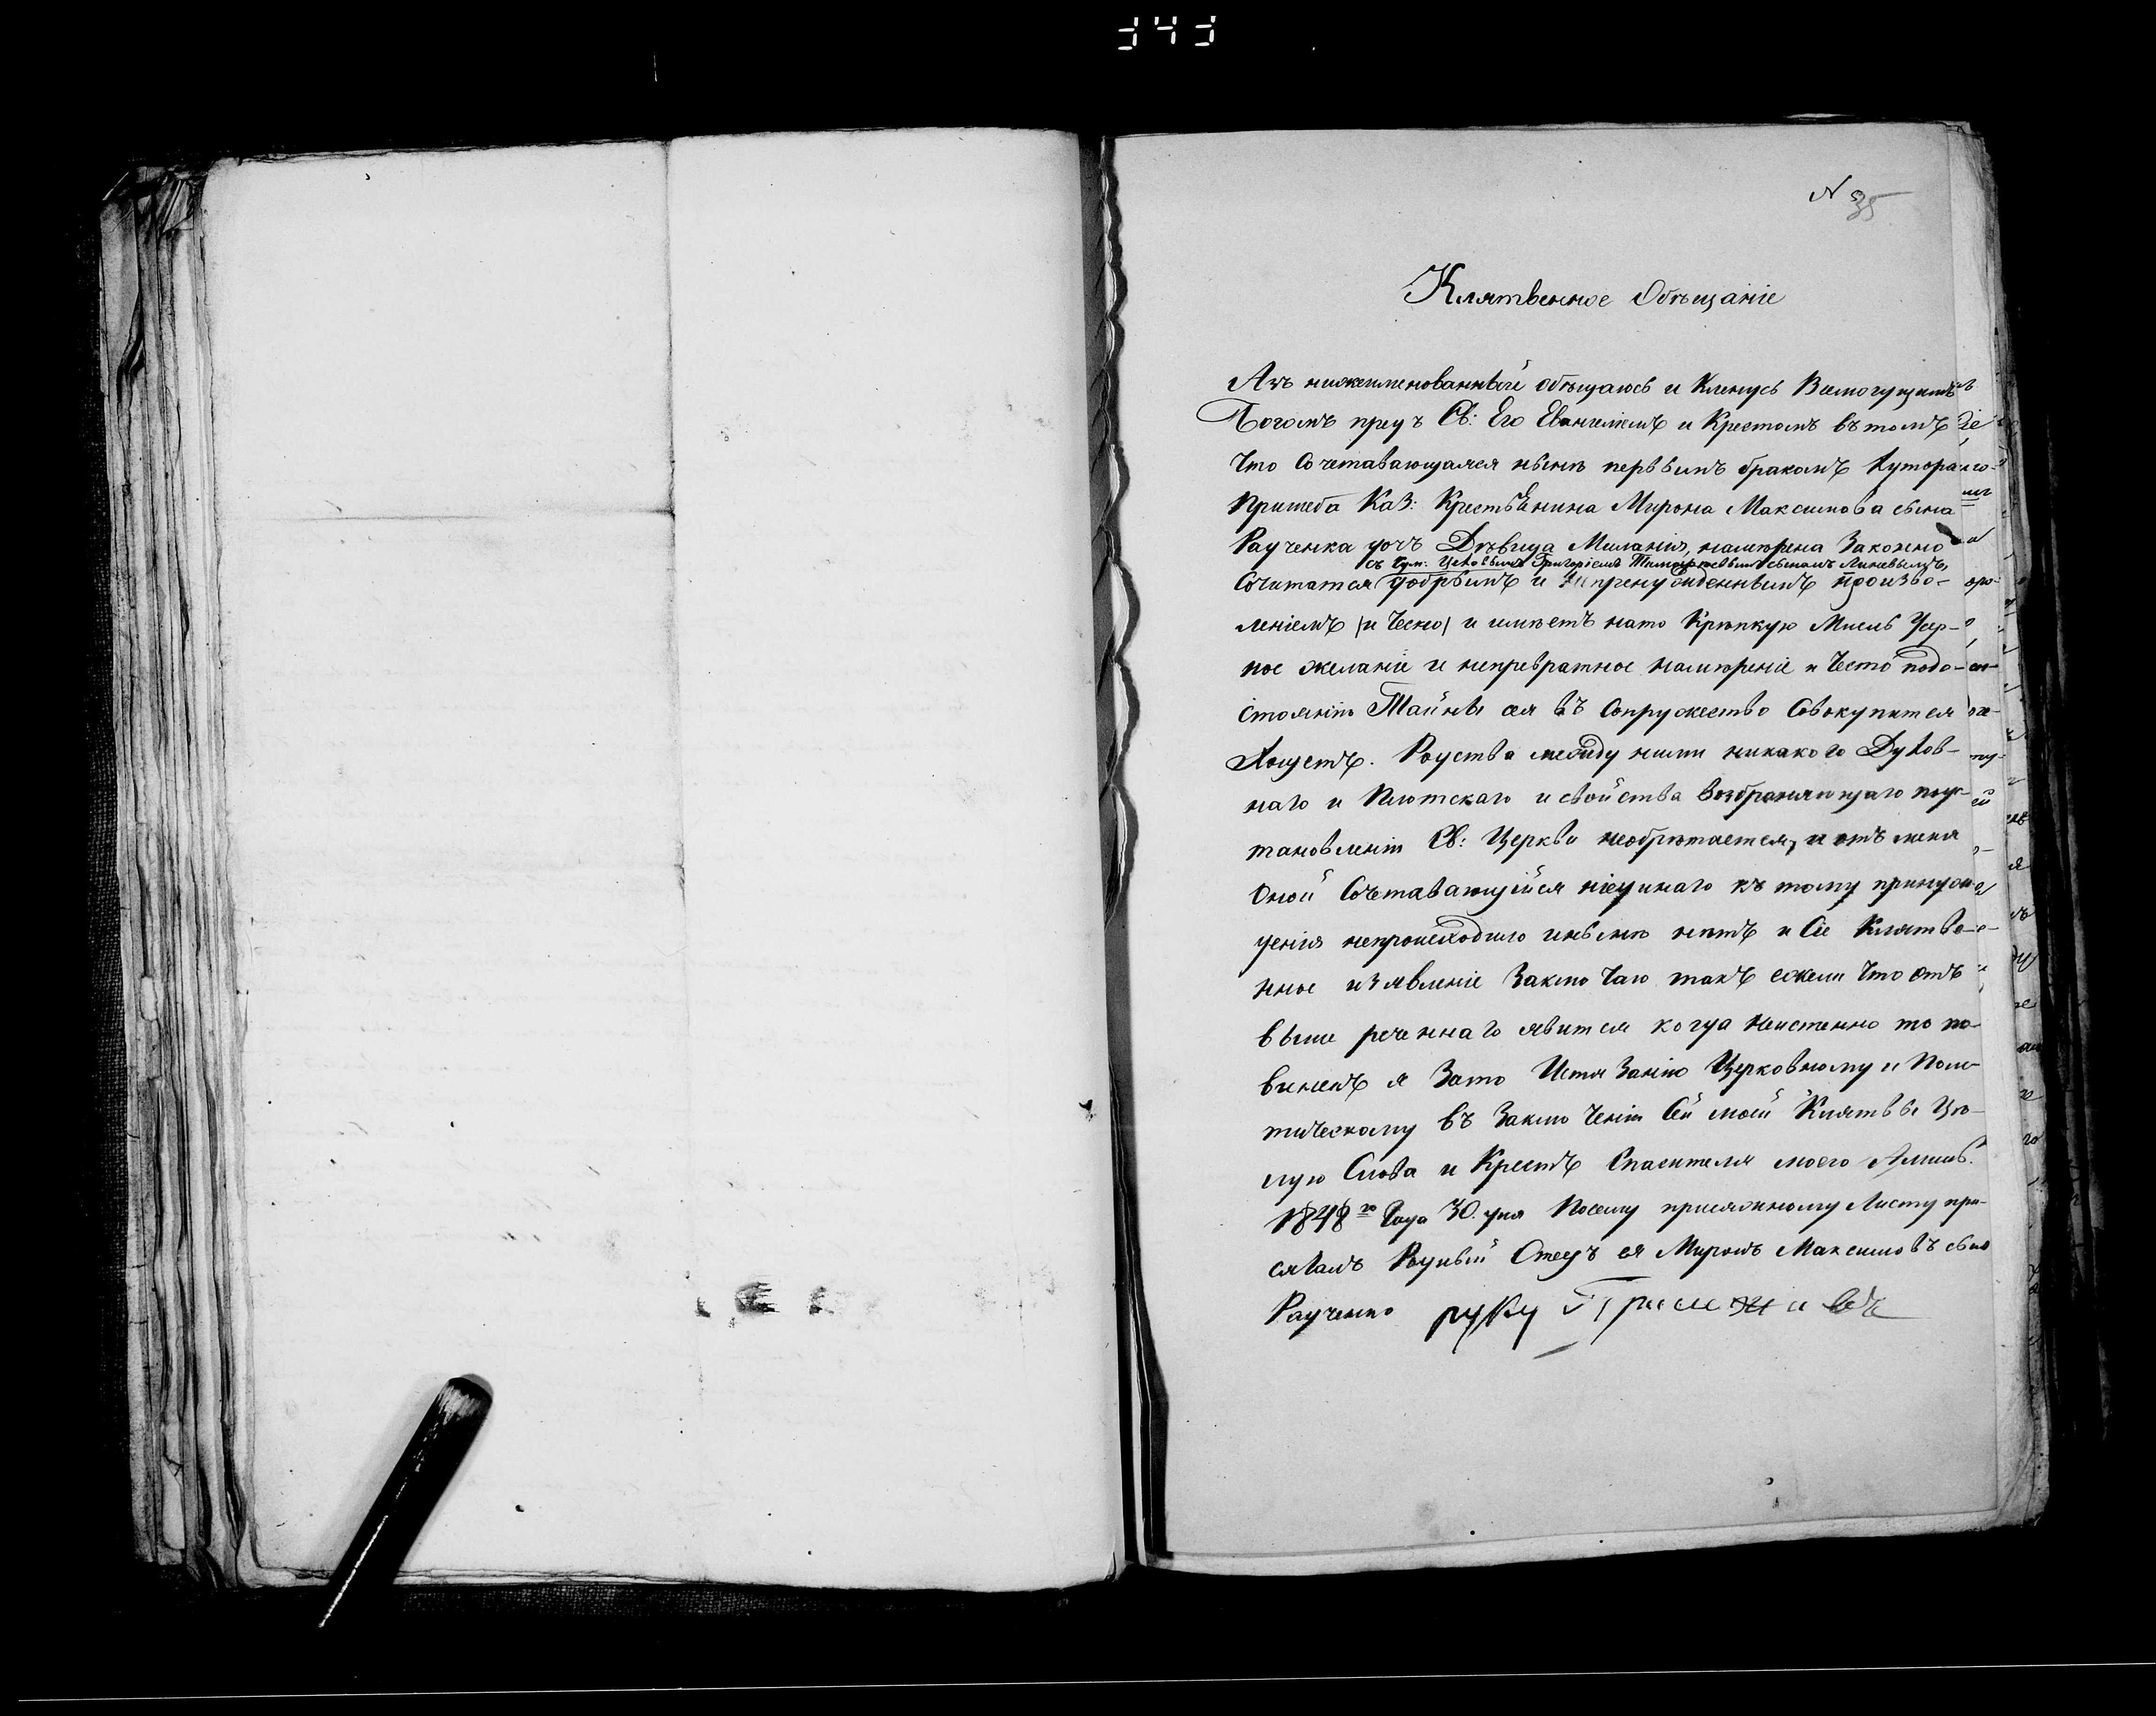 343
N 35
Клятвенное Обѣщаніе
Азъ нижеименованный обѣщаюсь и Кленусь Всемогущимъ
Богомъ предъ Св: Его Евангелiемъ и Крестомъ въ томъ
Что Сочетавающаяся нынѣ первымъ бракомъ Хутора
Пришеба Каз: Крестьянина Мирона Максимова сына
Радченка дочъ Дѣвица Миланія, намѣрена Законно
съ Григоріемъ Тимофѣевымъ сыномъ
Сочитатся добрымъ и непренужденнымъ произво-
леніемъ (и Чесно) и имѣетъ нато Крѣпкую Мисль Усер-
ное желаніе и непревратное намѣреніе и Често подо-
стоянію Тайны сея въ Сопружество Совокупится
Хощетъ. Родства между ними никакого Духов-
наго и Плотскаго и свойства возбраняющаго поус-
тановленію Св: Церкви необрѣтается, и отъ меня
Оной Сочетавающійся ніединаго къ тому принуж-
денія непроисходило инынѣ нѣтъ и Сіе Клятве-
нное изявленіе Заключаю такъ ежели Что отъ
выше реченнаго явится когда неистенно то по-
виненъ я Зато Истязанію Церковному и Поли-
тическому въ Заключеніи Сей моей Клятвы Цѣ-
лую Слова и Крестъ Спасителя моего Аминь.
1848го Года 30. дня Посему присяжному Листу при-
сягалъ Родный Отецъ ея Миронъ Максимовъ сынъ
Радченко руку Приложилъ